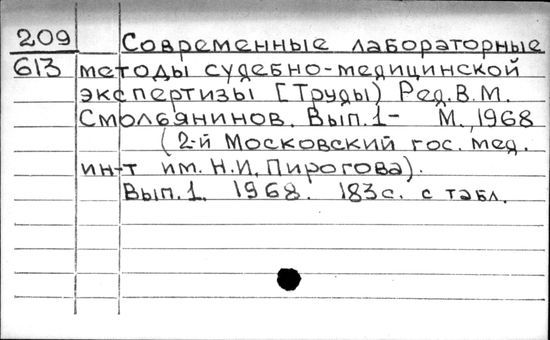 209 Современные лабораторные
613 методы судебно-медицинской
экспертизы [Труды) Ред. В.М.
Смольянинов. Вып.1- М., 1968
(2-й Московский гос. мед.
ин-т им. Н.И. Пирогова).
Вып.1. 1968. 183с. с табл.